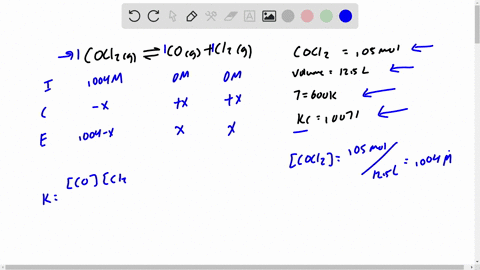 → 1 COCl₂ (g) ⇌ 1CO (g) + 1Cl₂ (g)
I .004M 0M 0M
C -x +x +x
E .004-x x x
K = [CO][Cl₂
COCl₂ = .05 mol ←
volume = 12.5 L ←
T = 600K ←
Kc = .0071 ←
[COCl₂] = .05 mol / 12.5 L = .004 M